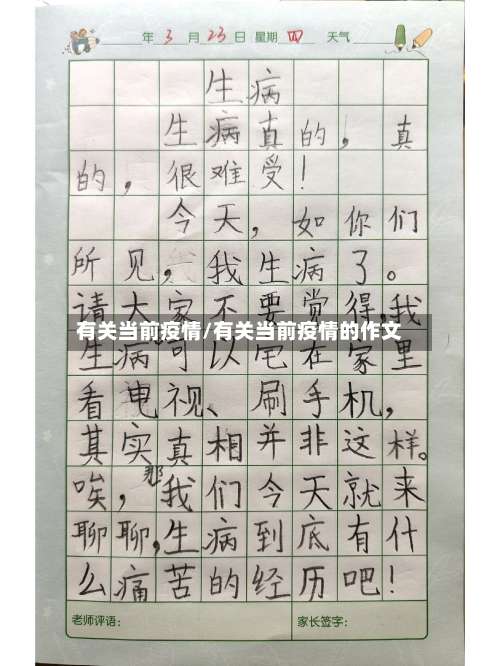 年 3 月 23 日 星期 四 天气
生病
生病真的，真
的，很难受！
今天，如你们
所见，我生病了。
请大家不要觉得，我
有关当前疫情/有关当前疫情的作文
生病可以宅在家里
看电视、刷手机，
其实真相并非这样。
唉，那我们今天就来
聊聊，生病到底有什
么痛苦的经历吧！
老师评语： 家长签字：